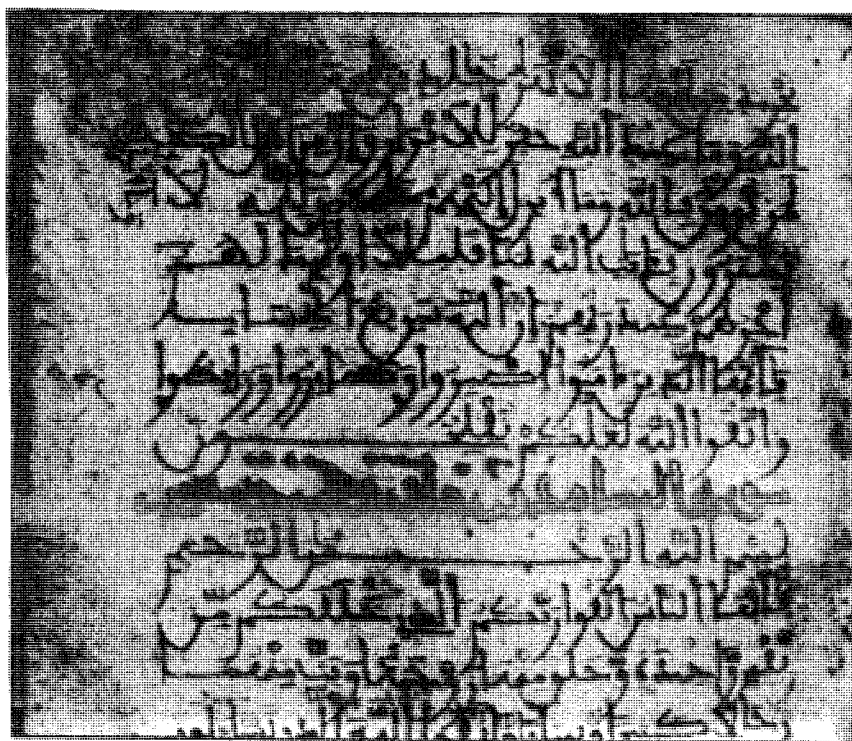 تحتها الانهر خلدين
الله وما عند الله خير للابرار وان من اهل الكتب
لمن يؤمن بالله وما انزل اليكم
يشترون بايت الله ثمنا قليلا اولئك لهم
اجرهم عند ربهم ان الله سريع الحساب
يايها الذين امنوا اصبروا وصابروا ورابطوا
واتقوا الله لعلكم تفلحون
سورة النساء
بسم الله الرحمن الرحيم
يايها الناس اتقوا ربكم الذي خلقكم من
نفس واحدة وخلق منها زوجها وبث منهما
رجالا كثيرا ونسا واتقوا الله الذي تسالون